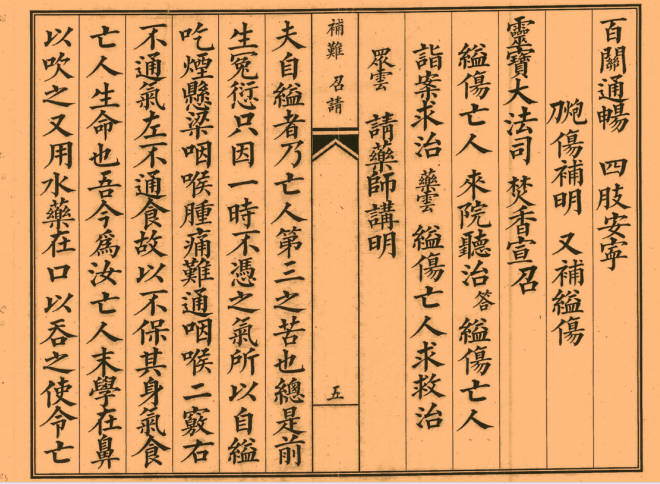 百關通暢　四肢安寧
刀炮傷補明　又補縊傷
靈寶大法司　焚香宣召
縊傷亡人　來院聽治　答　縊傷亡人
詣案求治　藥雲　縊傷亡人求救治
眾雲　請藥師講明
補難　召請　五
夫自縊者乃亡人第三之苦也總是前
生冤愆只因一時不憑之氣所以自縊
吃煙懸梁咽喉腫痛難通咽喉二竅右
不通氣左不通食故以不保其身氣食
亡人生命也吾今為汝亡人末學在鼻
以吹之又用水藥在口以吞之使令亡